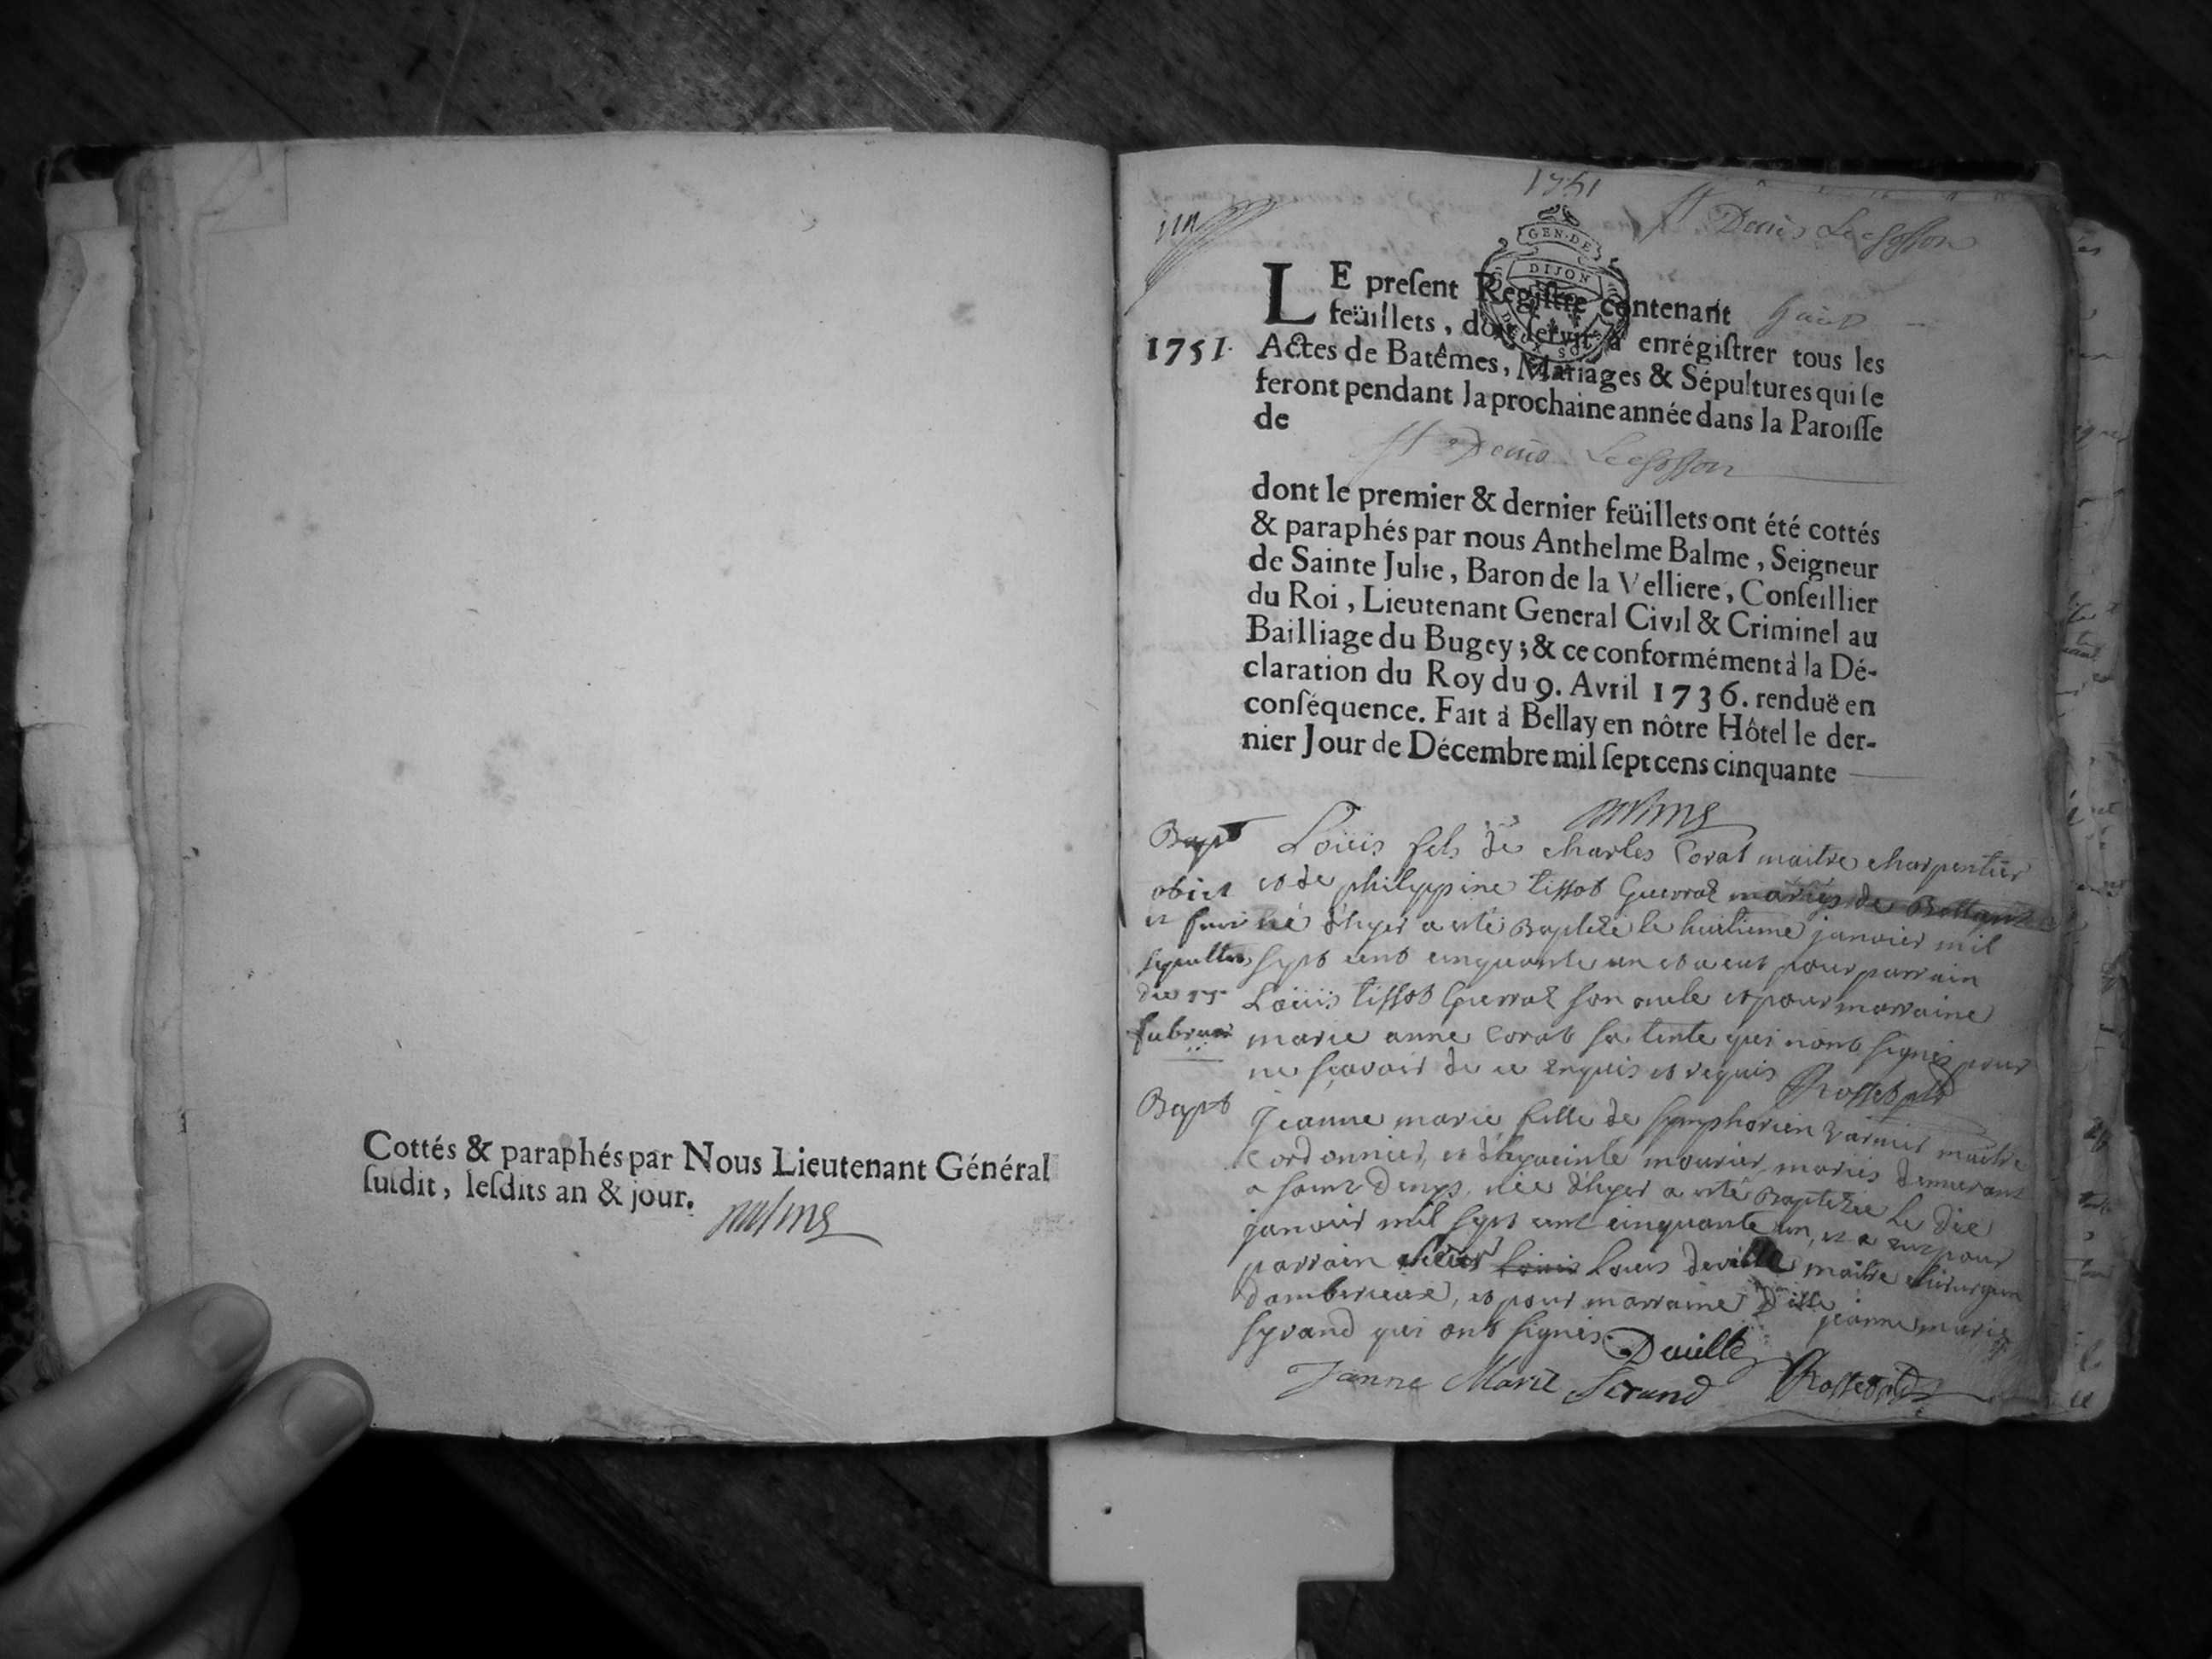 Cottés & paraphés par Nous Lieutenant Général
ſuſdit, leſdits an & jour.
Balme
1751
un
St Denis Le Chosson
GEN·DE
DIJON
DEUX SOLS
LE preſent Regiſtre contenant huit
feüillets, doit ſervir à enrégiſtrer tous les
1751. Actes de Batêmes, Mariages & Sépultures qui ſe
feront pendant la prochaine année dans la Paroiſſe
de St Denis Le Chosson
dont le premier & dernier feüillets ont été cottés
& paraphés par nous Anthelme Balme, Seigneur
de Sainte Julie, Baron de la Velliere, Conſeillier
du Roi, Lieutenant General Civil & Criminel au
Bailliage du Bugey; & ce conformément à la Dé-
claration du Roy du 9. Avril 1736. renduë en
conſéquence. Fait à Bellay en nôtre Hôtel le der-
nier Jour de Décembre mil ſept cens cinquante
Balme
Bapt
obiit
et fuit
sepultus
die 15
februar
Louis fils de charles Corat maitre charpentier
et de philippine tissot Guerrat mariés de
né d'hyer a esté Baptizé le huitieme janvier mil
sept cent cinquante un et a eut pour parrain
Louis tissot Guerrat son oncle et pour marraine
marie anne Corat sa tente qui nont signés pour
ne sçavoir de ce enquis et requis
Bapt
Jeanne marie fille de symphorien maitre
Cordonnier, et d'hyacinte mourier mariés demeurant
a saint Denys, née d'hyer a esté Baptizée le dix
janvier mil sept cent cinquante un, et a eut pour
parrain sieur Louis Louis deville maitre chirurgien
d'amberieux, et pour marraine dlle jeanne marie
syrand qui ont signés
Deville
Janne Marie Sirand